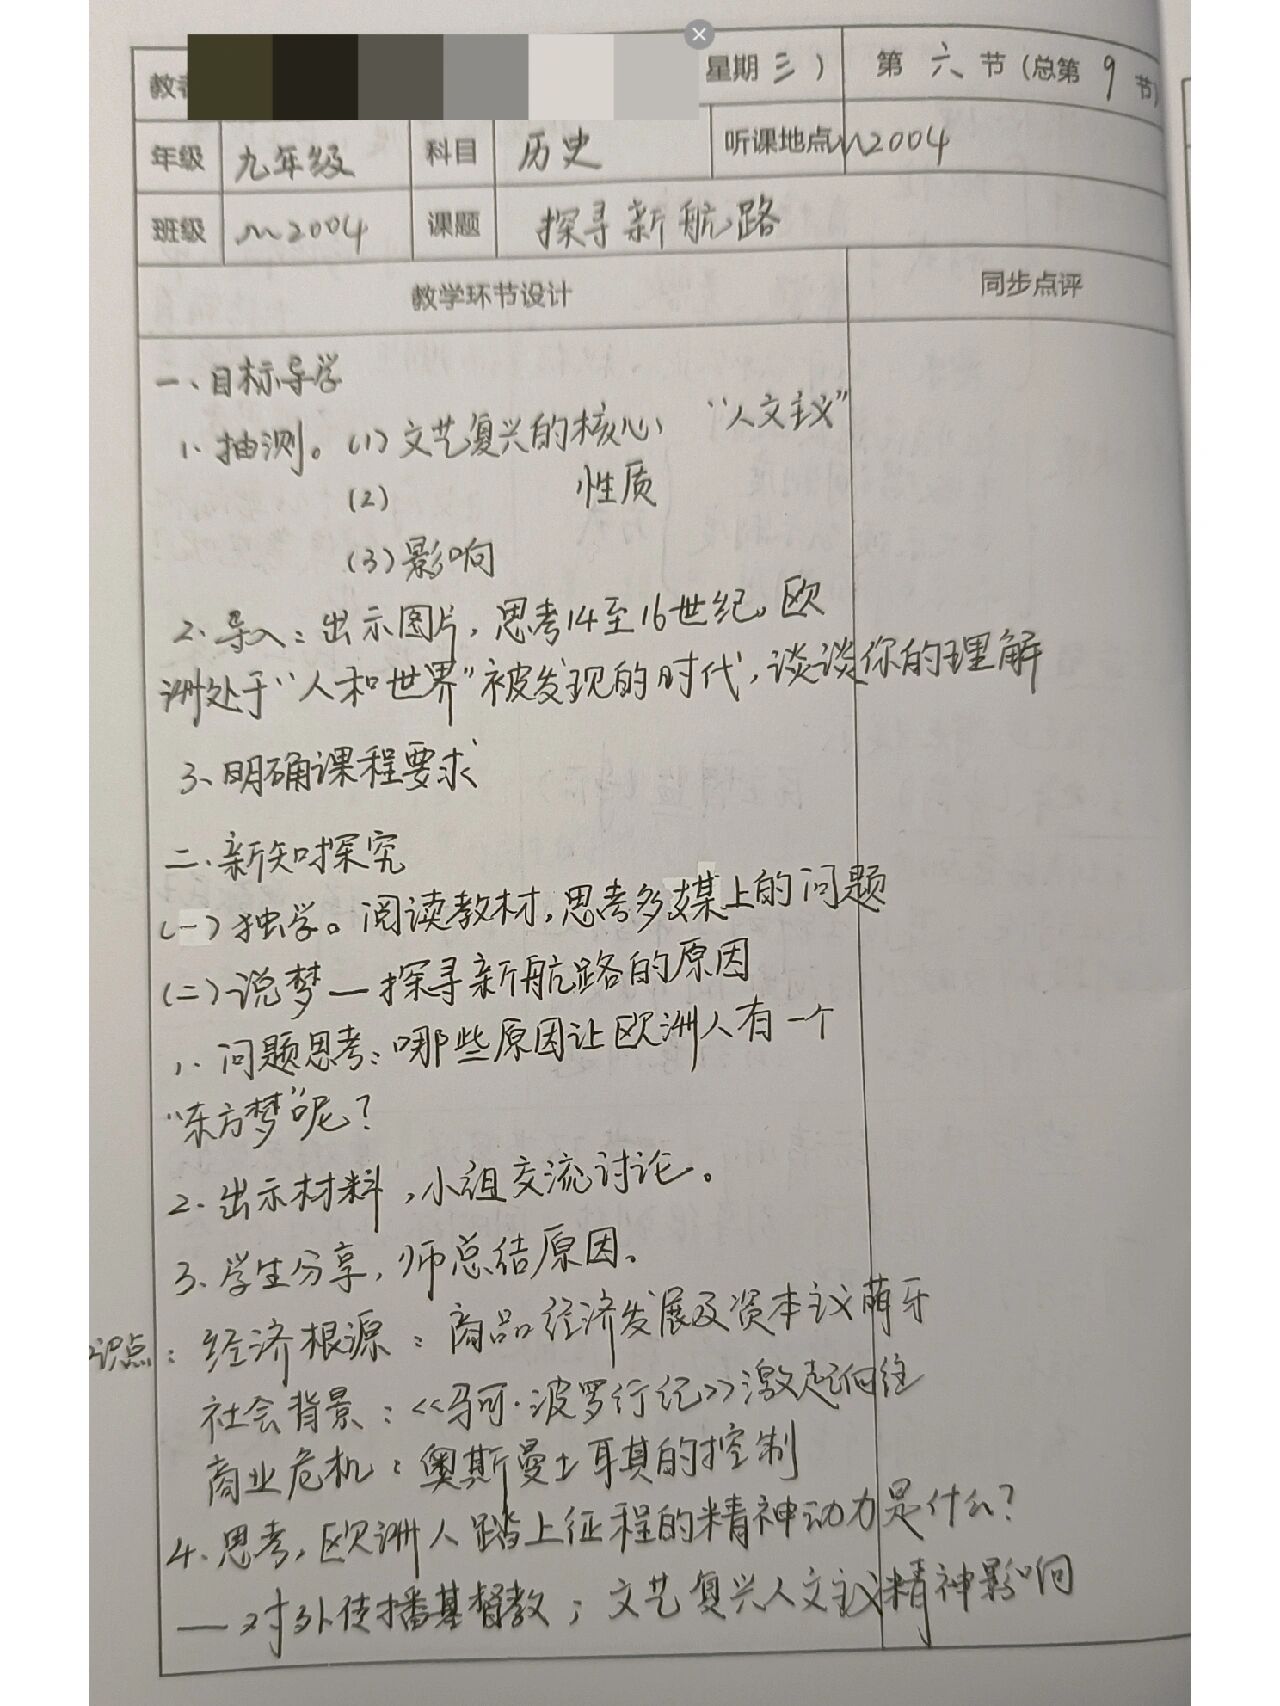 星期三） 第六节（总第9节）
年级 九年级 科目 历史 听课地点 m2004
班级 m2004 课题 探寻新航路
教学环节设计 同步点评
一、目标导学
1、抽测。(1)文艺复兴的核心 “人文主义”
(2) 性质
(3)影响
2、导入：出示图片，思考14至16世纪。欧
洲处于“人和世界”被发现的时代，谈谈你的理解
3、明确课程要求
二、新知探究
(一)独学。阅读教材，思考多媒上的问题
(二)说梦—探寻新航路的原因
1、问题思考：哪些原因让欧洲人有一个
“东方梦”呢？
2、出示材料，小组交流讨论。
3、学生分享，师总结原因。
识点：经济根源：商品经济发展及资本主义萌牙
社会背景：《马可·波罗行纪》激起向往
商业危机：奥斯曼土耳其的控制
4、思考，欧洲人踏上征程的精神动力是什么？
—对外传播基督教；文艺复兴人文主义精神影响